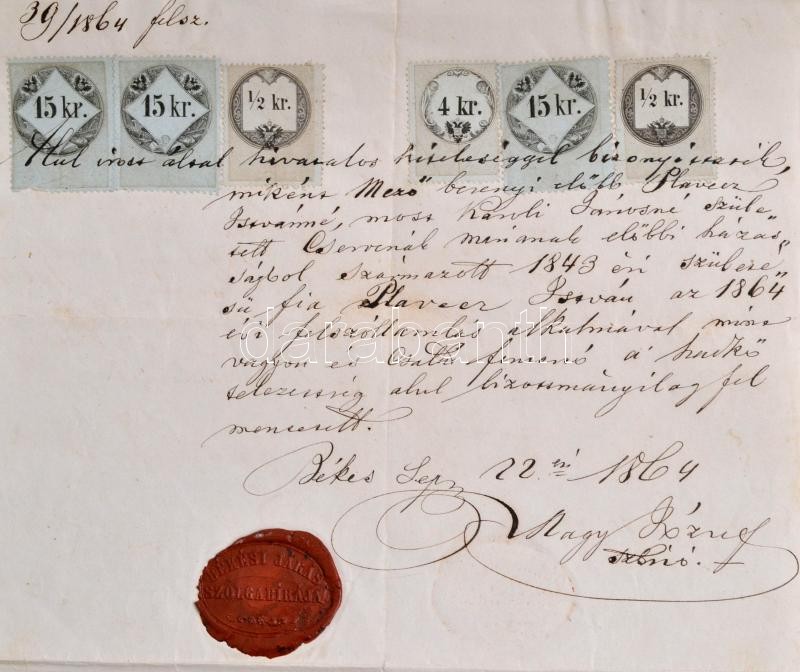 39/1864 felsz.
15 kr. 15 kr. 1/2 kr. 4 kr. 15 kr. 1/2 kr.
Alul irott által hivatalos hitelességgel bizonyittatik,
miként Mező berényi előbb Plavecz
Istvánné, most Károli Jánosné szüle„
tett Cservenák előbbi házas„
ságból származott 1843 évi születé„
sü fia Plavecz István az 1864
évi felszóllamlás alkalmával mint
vagyon és Család fentartó a hadkö
telezettség alul bizottmányilag fel
mentetett.
Békes Sep 22 én 1864
Nagy József
szbiró.
BÉKÉSI JÁRÁS
SZOLGABIRÁJA
darabanth